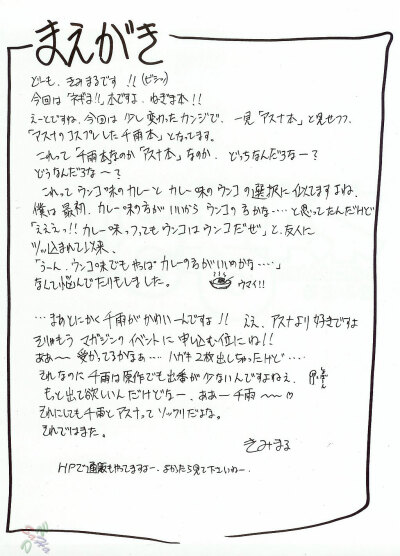 まえがき
どーも、きみまるです!!(ビシッ)
今回は「ネギま!!」本ですよ、ねぎま本!!
えーとですね、今回は少し変わったカンジで、一見「アスナ本」と見せつつ、
「アスナのコスプレした千雨本」となってます。
これって「千雨本なのか「アスナ本」なのか、どっちなんだろなー?
どうなんだろな〜?
これってウンコ味のカレーとカレー味のウンコの選択に似てますよね、
僕は最初、カレー味の方がいいからウンコの方かな…と思ってたんだけど
「えええっ!!カレー味っつってもウンコはウンコだぜ」と、友人に
ツッ込まれて以来、
「うーん、ウンコ味でもやっぱカレーの方がいいのかな…」
なんて悩んでたりもしました。
ウマイ!!
…まあとにかく千雨がかわいーんですよ!!ええ、アスナより好きですよ
そりゃもうマガジンのイベントに申し込む位にね!!
ああ〜受かってるかなぁ…ハガキ2枚出しちゃったけど…
それなのに千雨は原作でも出番が少ないんですよねえ、
もっと出て欲しいんだけどなー、ああー千雨〜♡
それにしても千雨とアスナってソックリだよな。
それではまた。
きみまる
HPで通販もやってますよー、よかったら見て下さいねー、